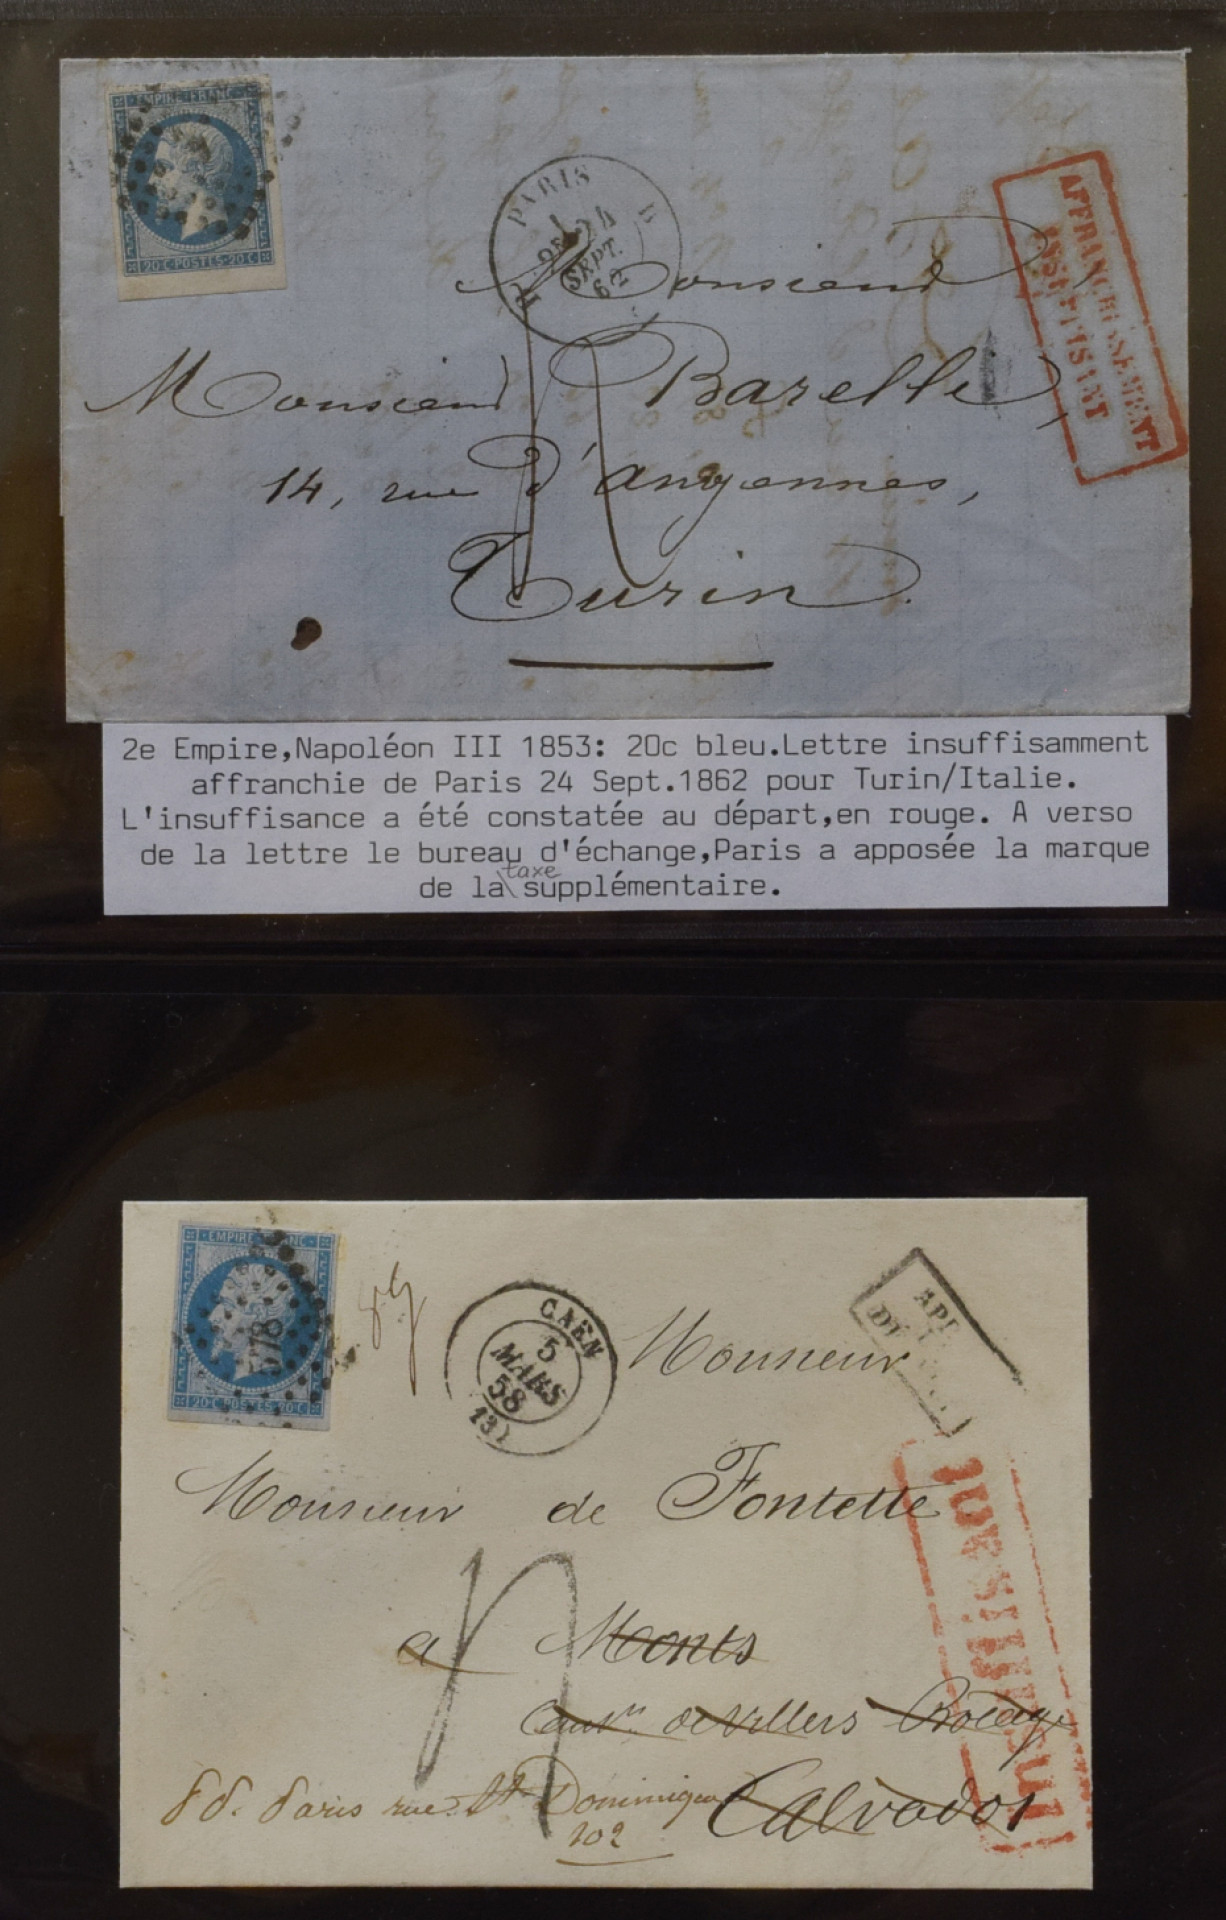 EMPIRE FRANC
20 C POSTES 20 C
PARIS
24
SEPT.
AFFRANCHISSEMENT
INSUFFISANT
Monsieur
Monsieur Barelle,
14, rue d'angennes,
Turin.
2e Empire,Napoléon III 1853: 20c bleu.Lettre insuffisamment
affranchie de Paris 24 Sept.1862 pour Turin/Italie.
L'insuffisance a été constatée au départ,en rouge. A verso
de la lettre le bureau d'échange,Paris a apposée la marque
de la taxe supplémentaire.
EMPIRE FRANC
578
20 C POSTES 20 C
8g
CAEN
5
MARS
58
(13)
Monsieur
Monsieur de Fontette
Insuffisant
a Monts
Villers Bocage
Calvados
Paris rue St Dominique
102